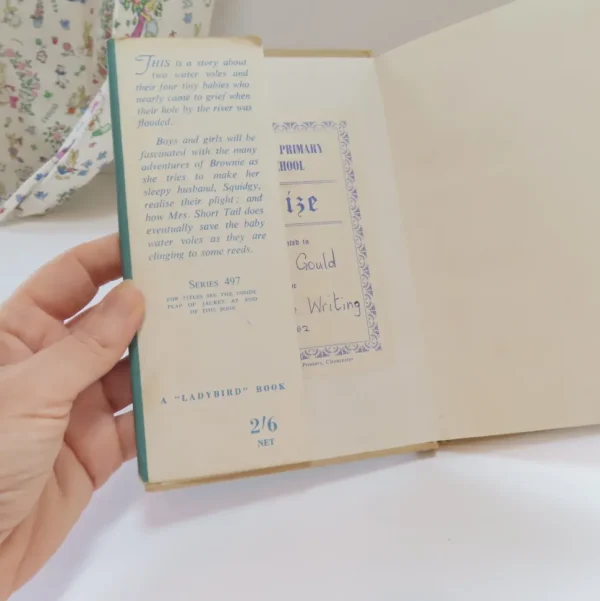 THIS is a story about
two water voles and
their four tiny babies who
nearly came to grief when
their hole by the river was
flooded.
Boys and girls will be
fascinated with the many
adventures of Brownie as
she tries to make her
sleepy husband, Squidgy,
realise their plight; and
how Mrs. Short Tail does
eventually save the baby
water voles as they are
clinging to some reeds.
SERIES 497
FOR TITLES SEE THE INSIDE
FLAP OF JACKET AT END
OF THIS BOOK
A "LADYBIRD" BOOK
2/6
NET
PRIMARY
HOOL
ize
Gould
Writing